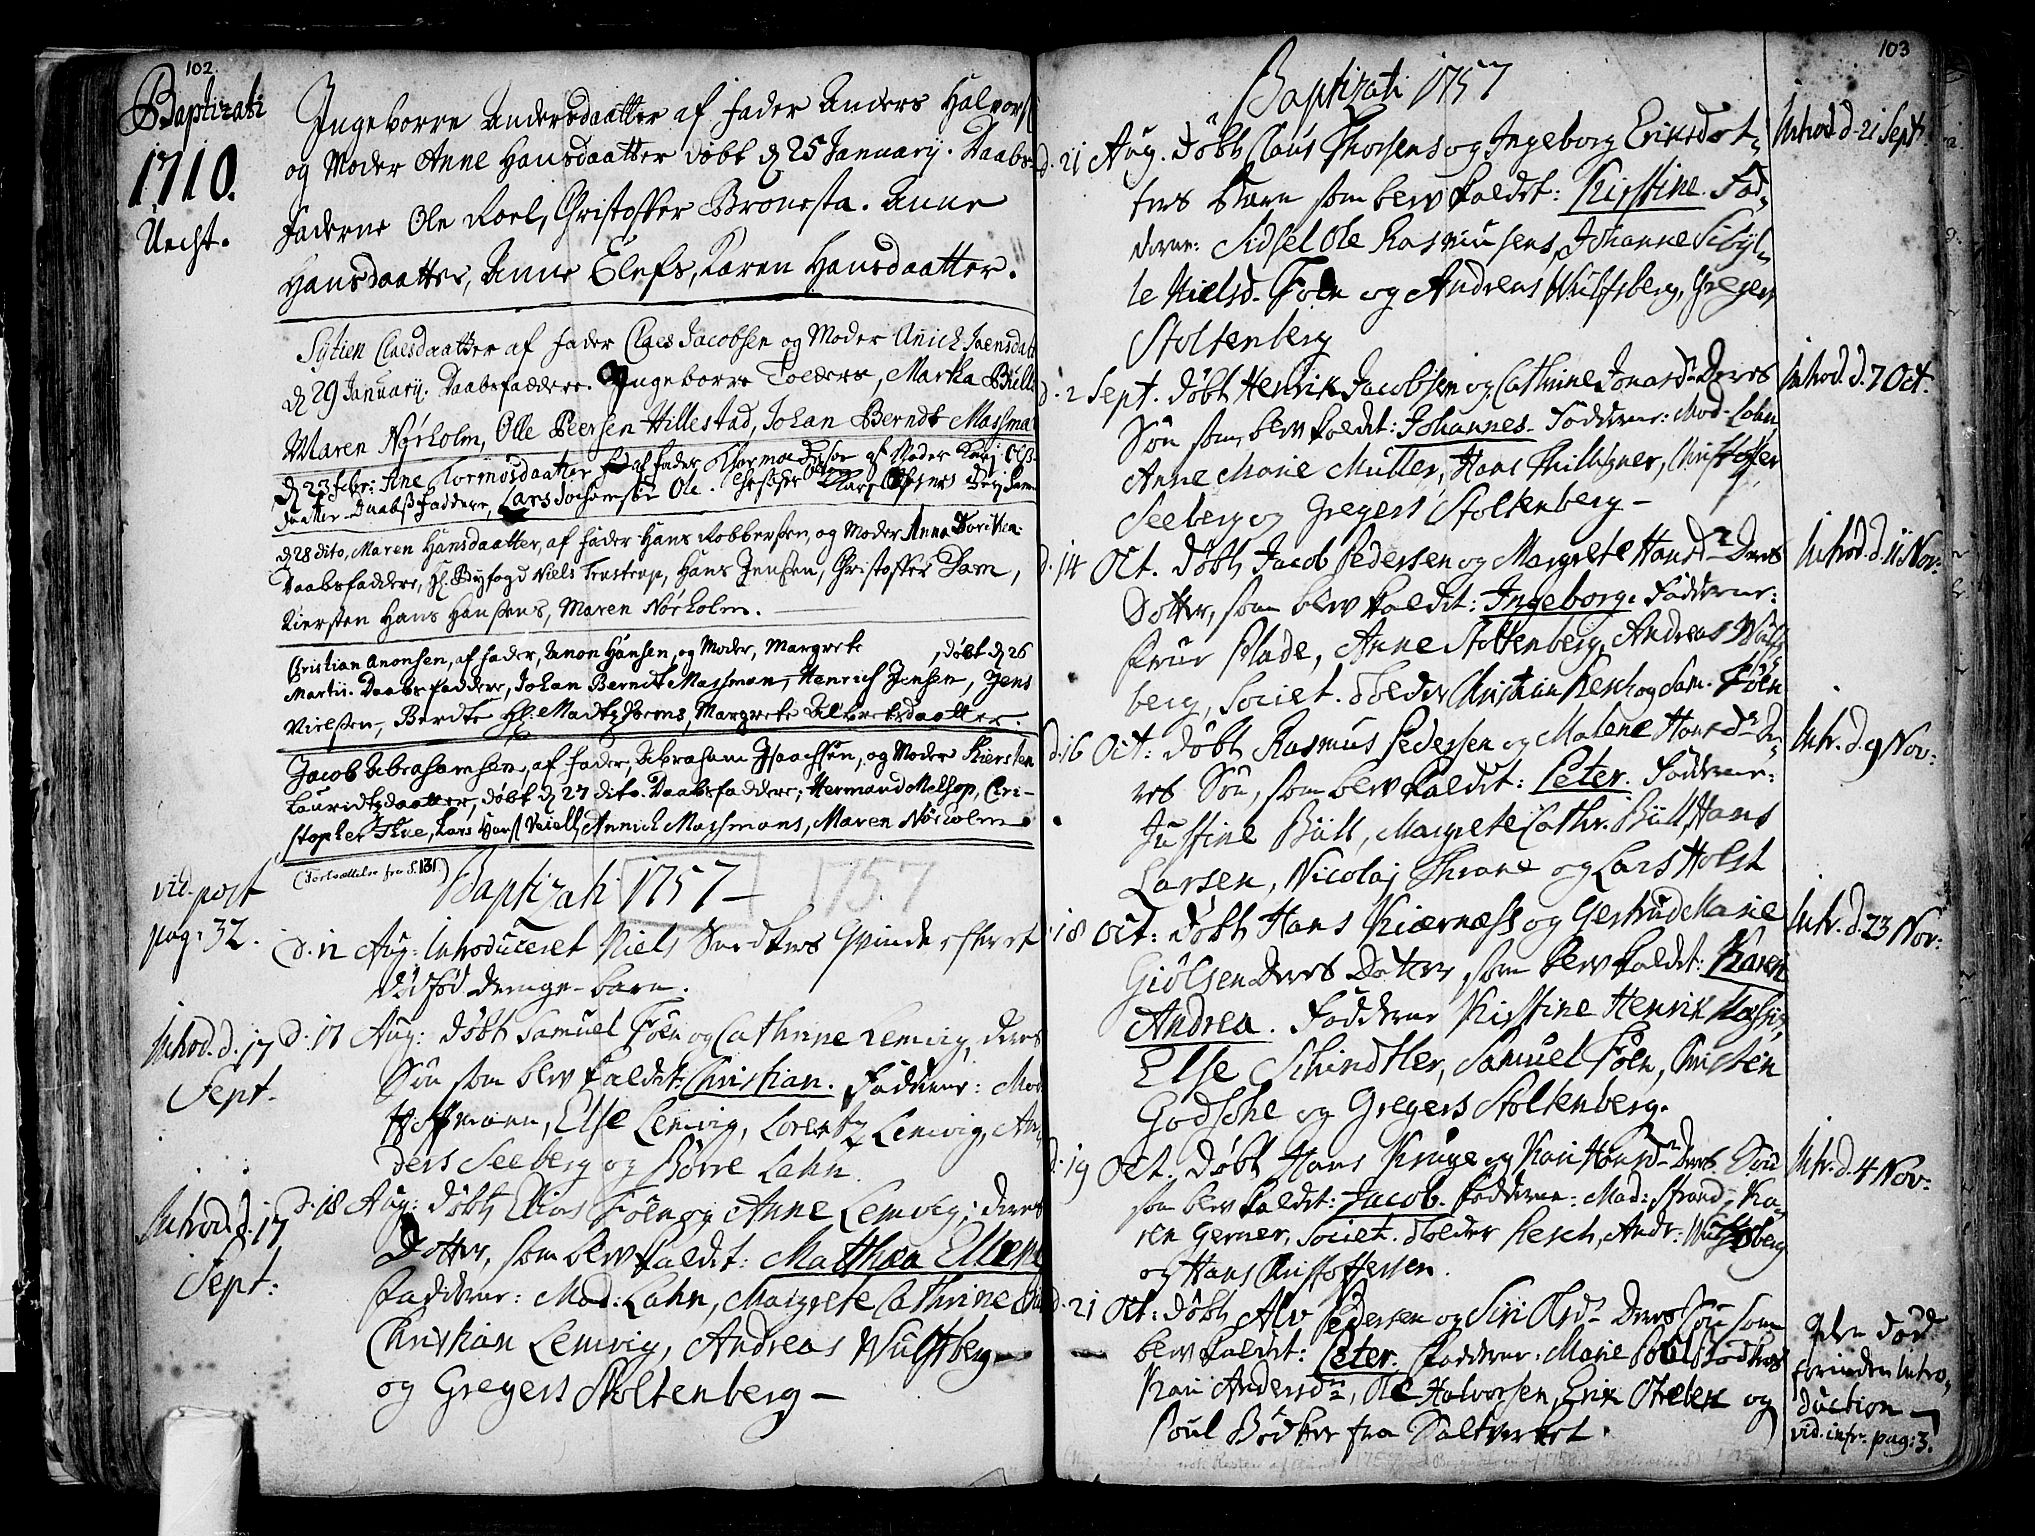 102.
Baptizati
1710.
Uecht.
Ingeborre Andersdaatter af fader Anders Halvors
og Moder Anne Hansdaatter døbt d 25 January. Daabs-
faderne Ole Roel, Christoffer Bronesta. Anne
Hansdaatter, Anne Elefs, Karen Hansdaatter.
Sytien Claesdaatter af fader Claes Jacobsen og Moder Anich Jaensdat
d 29 January. Daabsfaddere. Ingeborre Tolders, Martha Bülle
Maren Nørholm, Olle Peersen Hillestad, Johan Berndt Massman
d 23 febr: Ane Tormosdaatter af fader Thormod af Moder Karj
daatter Daabsfaddere, Lars Jochomsøn Ole
d 28 dito, Maren Hansdaatter, af fader Hans Robbersen, og Moder Anna Dorithea
Daabsfaddere, Hl. Byfogd Niels Trustrup, Hans Jensen, Christoffer Dam,
Kiersten Hans Hansens, Maren Nørholm.
Christian Anonsen, af fader, Anon Hansen, og Moder, Margrete , døbt d 26
Martii. Daabsfaddere, Johan Berndt Massman, Henrich Jensen, Jens
Nielsen, Berdte Hl: Madtz Iverns, Margrete Albretsdaatter.
Jacob Abrahamsen, af fader, Abraham Isaachsen, og Moder Kiersten
Lauridtzdaatter, døbt d 27 dito. Daabsfaddere, Hermand Melsop, Chri-
stopher Thue, Lars Hans Veiell, Annich Massmans, Maren Nørholm.
(Fortsættelse fra S. 131)
Baptizati 1757 - 1757
vid. post
pag: 32.
d. 12 Aug: Introduceret Niels Snedkers Qvinde efter et
dødfød drenge-barn.
Introd. d. 17
Sept.
d. 17 Aug: døbt Samuel Foen og Cathrine Lemvig, deres
Søn som blev kaldet: Christian. Faddere: Mad
Hoffmann, Else Lemvig, Lorentz Lemvig, An-
ders Seeberg og Børre Lahn.
Introd. d. 17
Sept:
d. 18 Aug: døbt Elias Foen og Anne Lemvig, deres
Dotter, som blev kaldet: Matthea Ellene
Faddere: Mad: Lahn, Margrete Cathrine
Christian Lemvig, Andreas Wulfsberg
og Gregers Stoltenberg -
103
Baptizati 1757
d. 21 Aug. døbt Claus Thorsens og Ingeborg Eriksdot-
ters Barn som blev kaldet: Kirstine. Fad-
derne: Sidsel Ole Rasmusens, Johanne Sibyl-
le Nielsd. Foen og Andreas Wulfsberg, Gregers
Stoltenberg
Introd. d. 21 Sept.
d. 2 Sept. døbt Henrik Jacobsen og Cathrine Jonasd. Deres
Søn som blev kaldet: Johannes. Fadderne: Mad. Lahn,
Anne Marie Müller, Hans Thilligner, Christoffer
Seeberg og Gregers Stoltenberg -
Introd. d. 7 Oct.
d. 14 Oct. døbt Jacob Pedersen og Margrete Hansd. Deres
Dotter, som blev kaldet: Ingeborg. Fadderne:
Frue Plade, Anne Stoltenberg, Andreas Wulfs-
berg, Societ. Tolder Christian Resch og Sam. Foen
Introd. d. 11 Nov:
d. 16 Oct: døbt Rasmus Pedersen og Malene Hansd. De-
res Søn, som blev kaldet: Peter. Fadderne:
Justine Büll, Margrete Cathr. Büll, Hans
Larsen, Nicolaj Thrane og Lars Holst
Intr. d. 9 Nov:
18 Oct: døbt Hans Kiærnæss og Gertrud Marie
Giølsen Deres Datter, som blev kaldet: Karen
Andrea. Fadderne Kirstine Henrik
Else Schindtler, Samuel Foen, Christen
Godsche og Gregers Stoltenberg.
Intr. d. 23 Nov:
d. 19 Oct. døbt Hans Kruge og Kari Hansd. Deres Søn
som blev kaldet: Jacob. Fadderne: Mad: Strand, Ka-
ren Gerner, Societ. Tolder Resch, Andr: Wulfsberg
og Hans Christoffersen.
Intr. d. 4 Nov:
d. 21 Oct: døbt Alv Pedersen og Siri Olsd. Deres Søn som
blev kaldet: Peter. Fadderne: Marie Poul Bødkers
Kari Andersd., Ole Halvorsen, Erik og
Poul Bødker fra Saltverket.
død
forinden Intro-
duction
vid. infr. pag: 3.